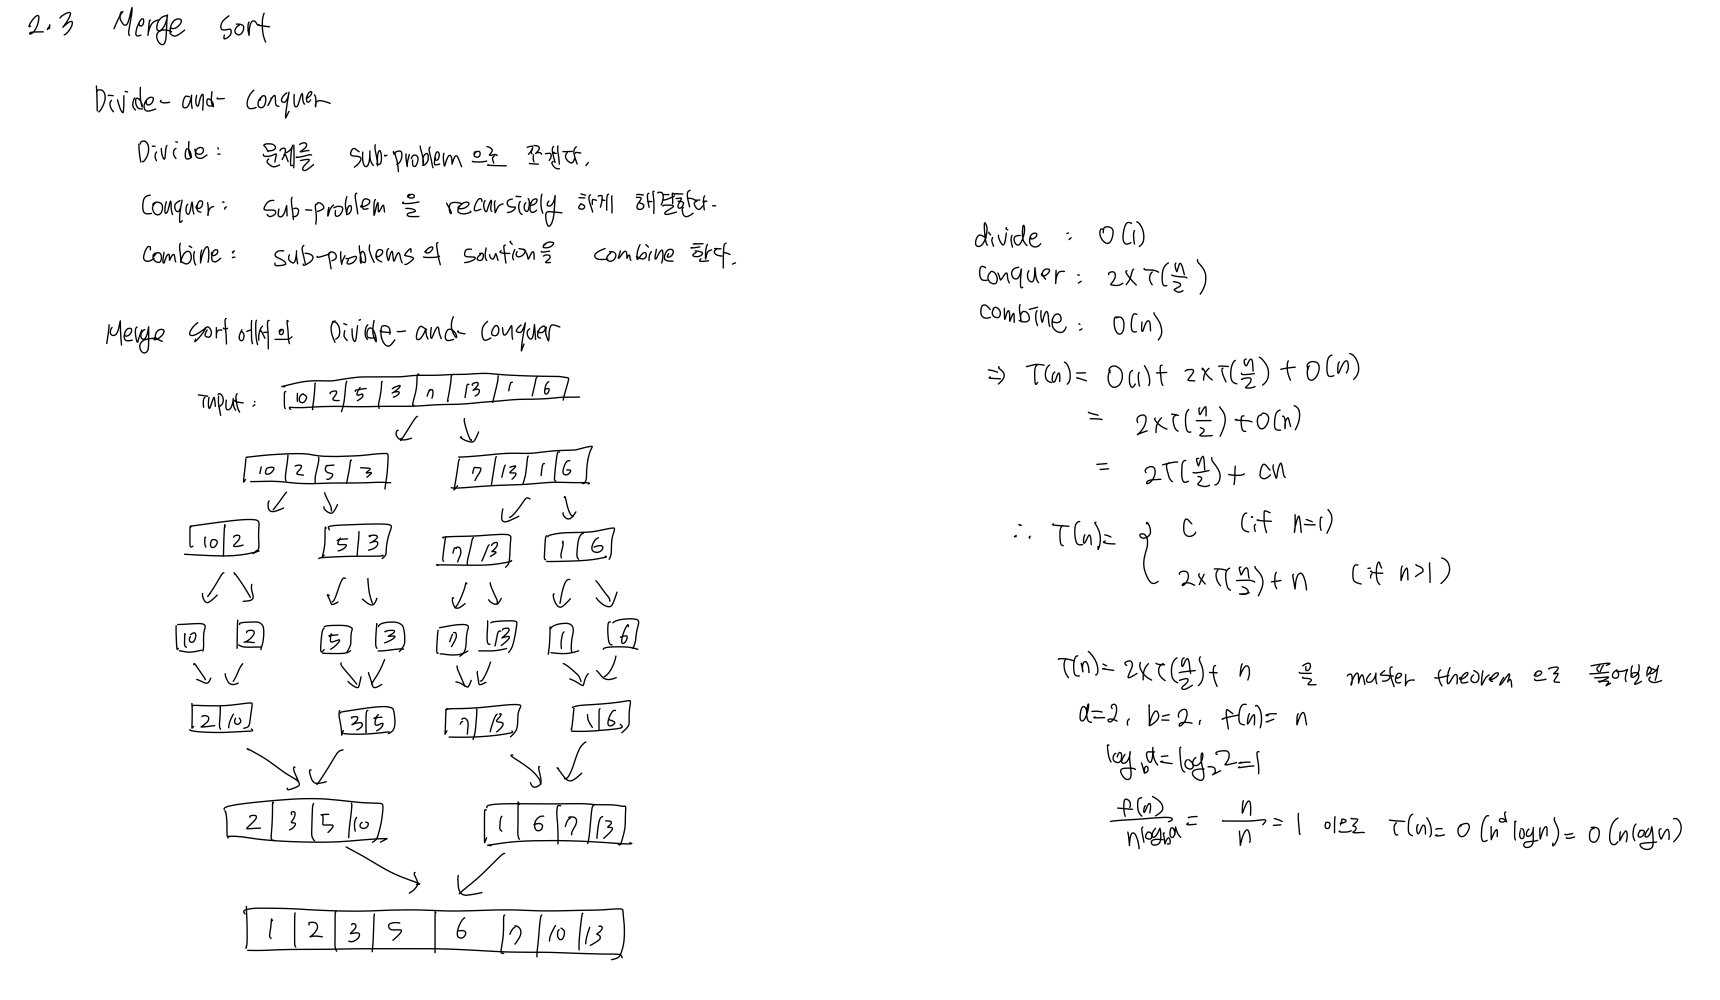 2.3 Merge sort
Divide-and-Conquer
Divide: 문제를 sub-problem으로 쪼갠다.
Conquer: sub-problem을 recursively 하게 해결한다.
Combine: sub-problems의 solution을 combine 한다.
Merge sort에서의 Divide-and-conquer
Input: 10 2 5 3 7 13 1 6
10 2 5 3 7 13 1 6
10 2 5 3 7 13 1 6
10 2 5 3 7 13 1 6
2 10 3 5 7 13 1 6
2 3 5 10 1 6 7 13
1 2 3 5 6 7 10 13
divide : O(1)
conquer : 2×T(n/2)
combine : O(n)
⇒ T(n)= O(1)+ 2×T(n/2)+O(n)
= 2×T(n/2)+O(n)
= 2T(n/2)+ cn
∴ T(n)= { c (if n=1)
2×T(n/2)+n (if n>1)
T(n)= 2×T(n/2)+ n 을 master theorem 으로 풀어보면
a=2, b=2, f(n)= n
log_b a = log_2 2 = 1
f(n)/n^log_b a = n/n = 1 이므로 T(n)= O(n^d logn)= O(nlogn)